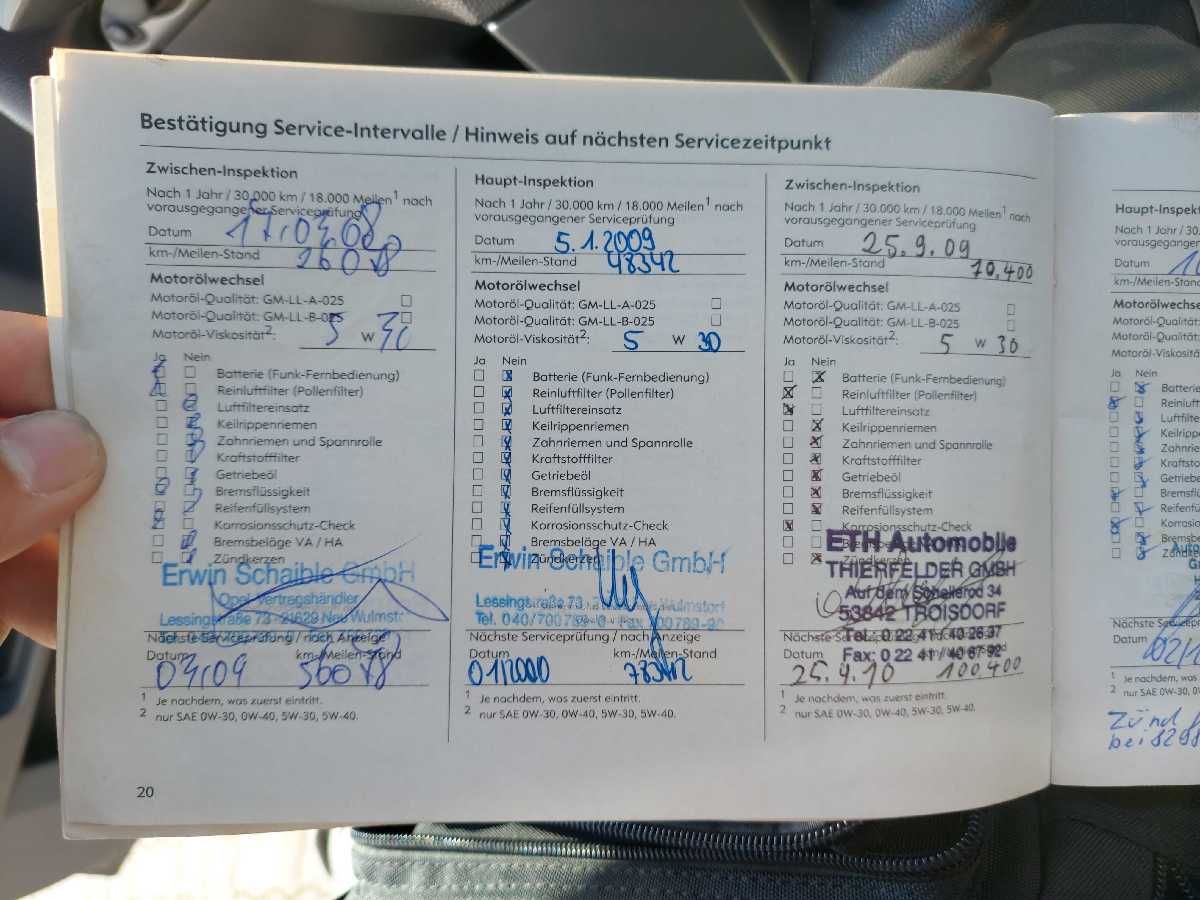 Bestätigung Service-Intervalle / Hinweis auf nächsten Servicezeitpunkt
Zwischen-Inspektion
Nach 1 Jahr / 30.000 km / 18.000 Meilen¹ nach
vorausgegangener Serviceprüfung
Datum 17.03.08
km-/Meilen-Stand 26078
Motorölwechsel
Motoröl-Qualität: GM-LL-A-025
Motoröl-Qualität: GM-LL-B-025
Motoröl-Viskosität²: 5 W 30
Ja Nein
Batterie (Funk-Fernbedienung)
Reinluftfilter (Pollenfilter)
Luftfiltereinsatz
Keilrippenriemen
Zahnriemen und Spannrolle
Kraftstofffilter
Getriebeöl
Bremsflüssigkeit
Reifenfüllsystem
Korrosionsschutz-Check
Bremsbeläge VA / HA
Zündkerzen
Erwin Schaible GmbH
Opel Vertragshändler
Lessingstraße 73 - 21629 Neu Wulmst
Nächste Serviceprüfung / nach Anzeige
Datum km-/Meilen-Stand
03.09 56078
1 Je nachdem, was zuerst eintritt.
2 nur SAE 0W-30, 0W-40, 5W-30, 5W-40.
20
Haupt-Inspektion
Nach 1 Jahr / 30.000 km / 18.000 Meilen¹ nach
vorausgegangener Serviceprüfung
Datum 5.1.2009
km-/Meilen-Stand 48342
Motorölwechsel
Motoröl-Qualität: GM-LL-A-025
Motoröl-Qualität: GM-LL-B-025
Motoröl-Viskosität²: 5 W 30
Ja Nein
Batterie (Funk-Fernbedienung)
Reinluftfilter (Pollenfilter)
Luftfiltereinsatz
Keilrippenriemen
Zahnriemen und Spannrolle
Kraftstofffilter
Getriebeöl
Bremsflüssigkeit
Reifenfüllsystem
Korrosionsschutz-Check
Bremsbeläge VA / HA
Zündkerzen
Erwin Schaible GmbH
Lessingstraße 73 Wulmstorf
Tel. 040/700789-0 - Fax 700789-90
Nächste Serviceprüfung / nach Anzeige
Datum km-/Meilen-Stand
78342
1 Je nachdem, was zuerst eintritt.
2 nur SAE 0W-30, 0W-40, 5W-30, 5W-40.
Zwischen-Inspektion
Nach 1 Jahr / 30.000 km / 18.000 Meilen¹ nach
vorausgegangener Serviceprüfung
Datum 25.9.09
km-/Meilen-Stand 70.400
Motorölwechsel
Motoröl-Qualität: GM-LL-A-025
Motoröl-Qualität: GM-LL-B-025
Motoröl-Viskosität²: 5 W 30
Ja Nein
Batterie (Funk-Fernbedienung)
Reinluftfilter (Pollenfilter)
Luftfiltereinsatz
Keilrippenriemen
Zahnriemen und Spannrolle
Kraftstofffilter
Getriebeöl
Bremsflüssigkeit
Reifenfüllsystem
Korrosionsschutz-Check
Zündkerzen
ETH Automobile
THIERFELDER GMBH
Auf dem Schellerod 34
53842 TROISDORF
Tel.: 0 22 41 / 40 26 37
Fax: 0 22 41 / 40 67 92
Nächste
Datum
25.4.10 100.400
1 Je nachdem, was zuerst eintritt.
2 nur SAE 0W-30, 0W-40, 5W-30, 5W-40.
Haupt-Inspekt
Nach 1 Jahr / 30.
vorausgegangen
Datum
km-/Meilen-Stan
Motorölwechse
Motoröl-Qualität:
Motoröl-Qualität:
Motoröl-Viskositä
Ja Nein
Batterie
Reinluft
Luftfilte
Keilripp
Zahnrie
Kraftsto
Getriebe
Bremsfl
Reifenfü
Korrosio
Bremsbe
Datum
1 Je nachdem,
2 nur SAE 0W-
Zünd
bei